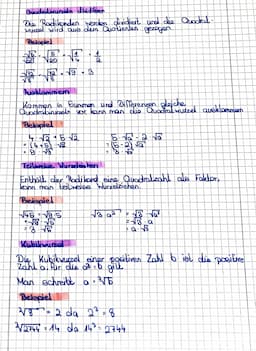 Quadratwurzeln dividieren
Die Radikanden werden dividiert und die Quadrat-
wurzel wird aus dem Quotienten gezogen.
Beispiel
Ausklammern
Kommen in Summen und Differenzen gleiche
Quadratwurzeln vor kann man die Quadratwurzel ausklammern
Beispiel
4·√2 + 5·√2
= (4+5)·√2
Teilweise Wurzelziehen
Enthält der Radikand eine Quadratzahl als Faktor,
kann man teilweise Wurzelziehen.
Beispiel
Kubikwurzel
Die Kubikwurzel einer positiven Zahl b ist die positive
Zahl a, für die a³ = b gilt.
Man schreibt a = ³√b
Beispiel
³√8 = 2 da 2³ = 8
³√2744 = 14 da 14³ = 2744